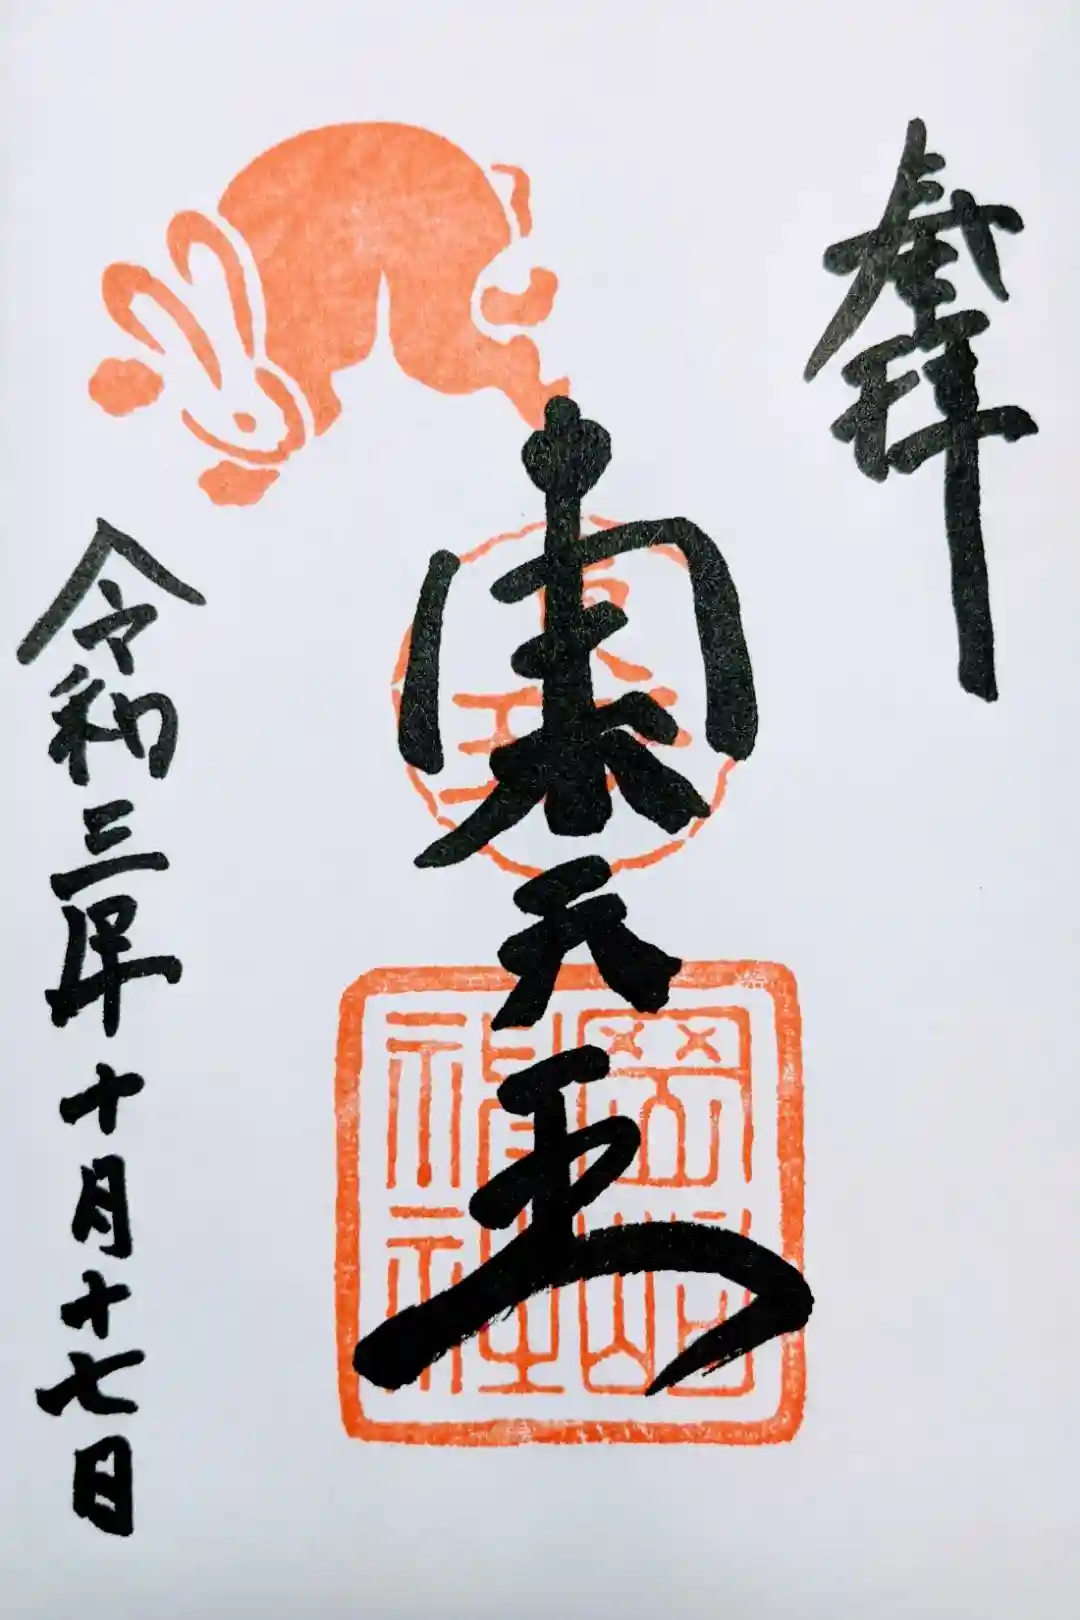 奉拝
東天王
岡崎
神社
令和三年十月十七日